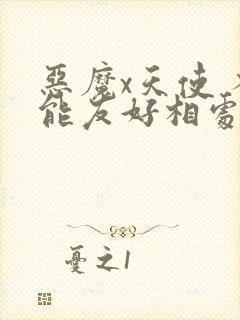 惡魔x天使
能友好相處
憂之1